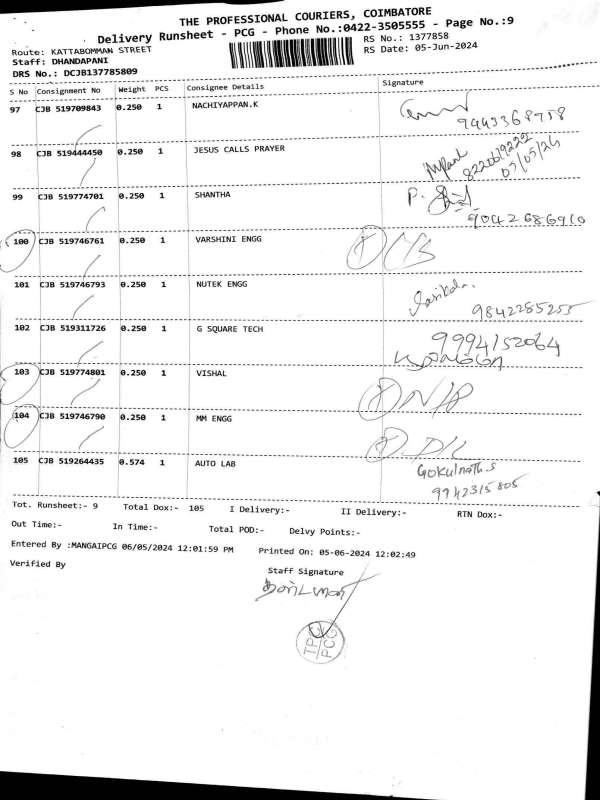 THE PROFESSIONAL COURIERS, COIMBATORE
Delivery Runsheet - PCG - Phone No.:0422-3505555 - Page No.:9
Route: KATTABOMMAN STREET RS No.: 1377858
Staff: DHANDAPANI RS Date: 05-Jun-2024
DRS No.: DCJB137785809
S No Consignment No Weight PCS Consignee Details Signature
97 CJB 519709843 0.250 1 NACHIYAPPAN.K
9443368758
98 CJB 519444450 0.250 1 JESUS CALLS PRAYER
8220619222
05/05/24
99 CJB 519774701 0.250 1 SHANTHA P.
9042686910
100 CJB 519746761 0.250 1 VARSHINI ENGG
101 CJB 519746793 0.250 1 NUTEK ENGG Sasikala.
9842285255
102 CJB 519311726 0.250 1 G SQUARE TECH 9994152064
103 CJB 519774801 0.250 1 VISHAL
104 CJB 519746790 0.250 1 MM ENGG
105 CJB 519264435 0.574 1 AUTO LAB Gokulnath.S
9942315805
Tot. Runsheet:- 9 Total Dox:- 105 I Delivery:- II Delivery:- RTN Dox:-
Out Time:- In Time:- Total POD:- Delvy Points:-
Entered By :MANGAIPCG 06/05/2024 12:01:59 PM Printed On: 05-06-2024 12:02:49
Verified By Staff Signature
TPC
PCG